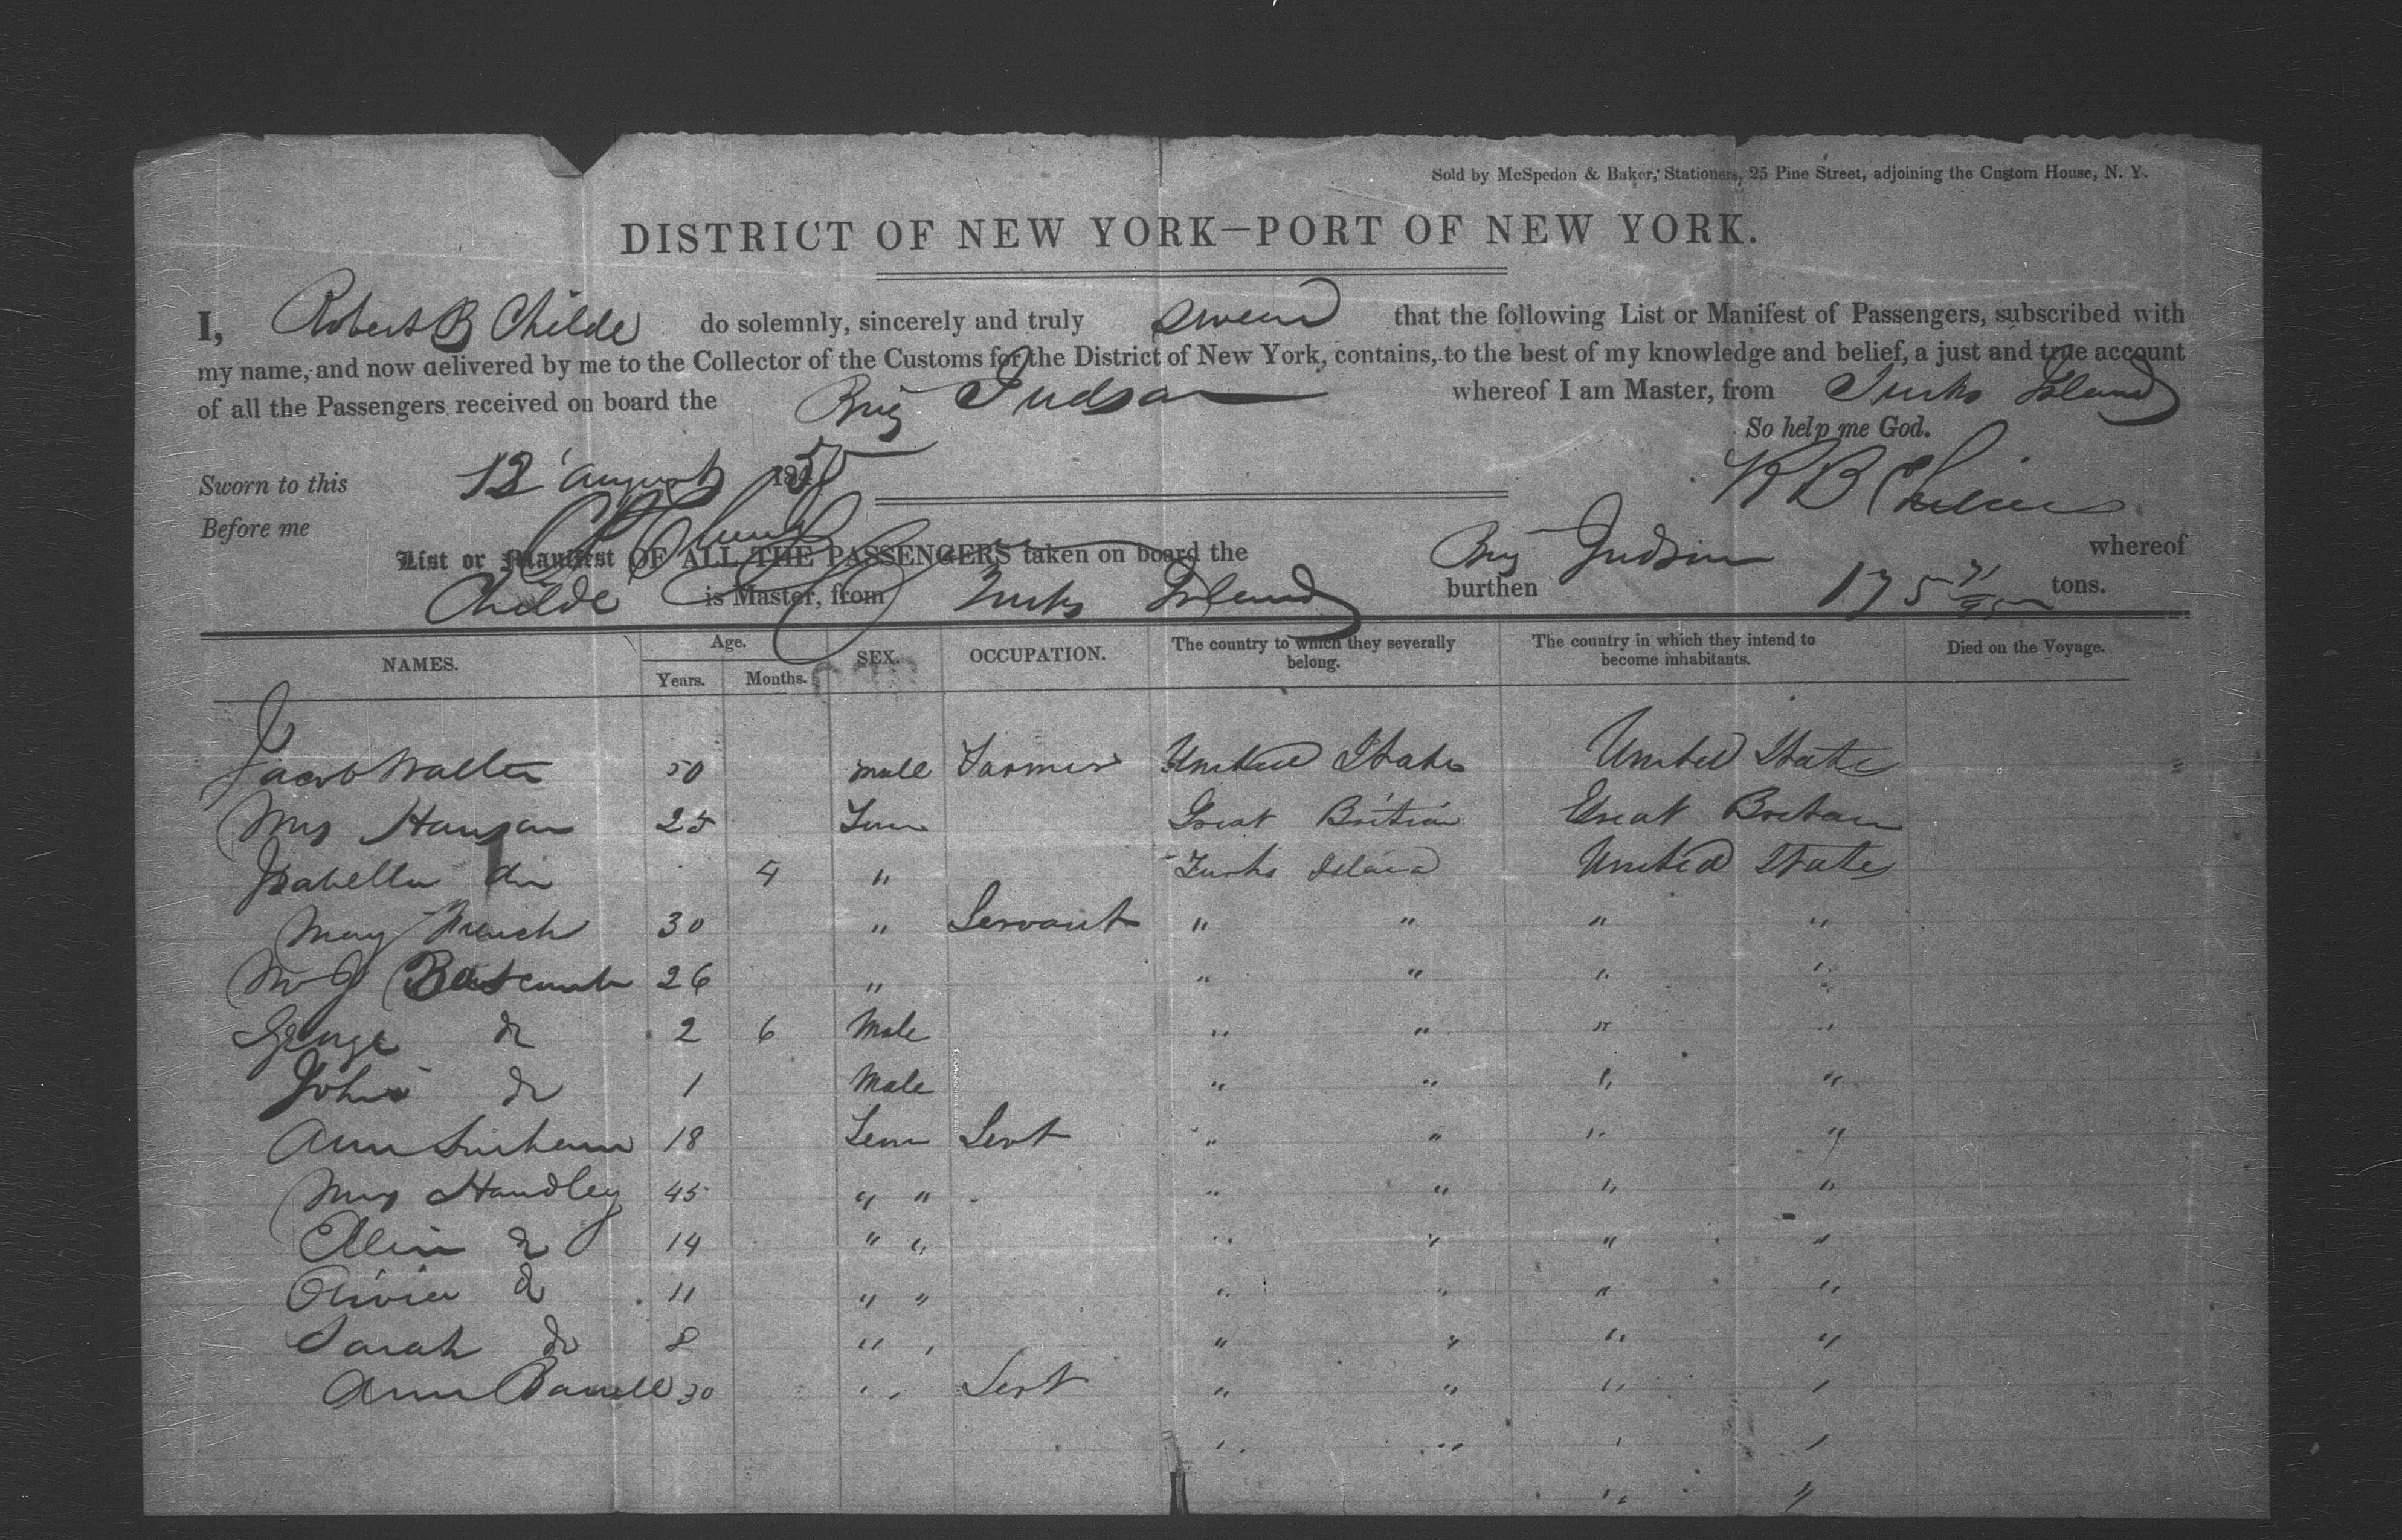 Sold by McSpedon & Baker, Stationers, 25 Pine Street, adjoining the Custom House, N. Y.
DISTRICT OF NEW YORK—PORT OF NEW YORK.
I, Robert B Childe do solemnly, sincerely and truly swear that the following List or Manifest of Passengers, subscribed with
my name, and now delivered by me to the Collector of the Customs for the District of New York, contains, to the best of my knowledge and belief, a just and true account
of all the Passengers received on board the Brig Judson whereof I am Master, from Turks Island
So help me God.
Sworn to this 12 August 1850 R B Childe
Before me
List or Manifest OF ALL THE PASSENGERS taken on board the Brig Judson whereof
Childe is Master, from Turks Island burthen 175 71/95 tons.
NAMES. Age. Years. Months. SEX. OCCUPATION. The country to which they severally belong. The country in which they intend to become inhabitants. Died on the Voyage.
Jacob Walter 50 male Farmer United States United State
Mrs Hanson 25 Fem Great Britian Great Britain
Isabella do 4 " Turks Island United States
May French 30 " Servant " " " "
Mrs J Bascomb 26 " " " " "
George do 2 6 Male " " " "
John do 1 Male " " " "
Ann 18 Fem Sert " " " "
Mrs Handley 45 " " " " " "
do 14 " " " " " "
Olivia do 11 " " " " " "
Sarah do 8 " " " " " "
Ann 30 " " Sert " " " "
" " " "
" "